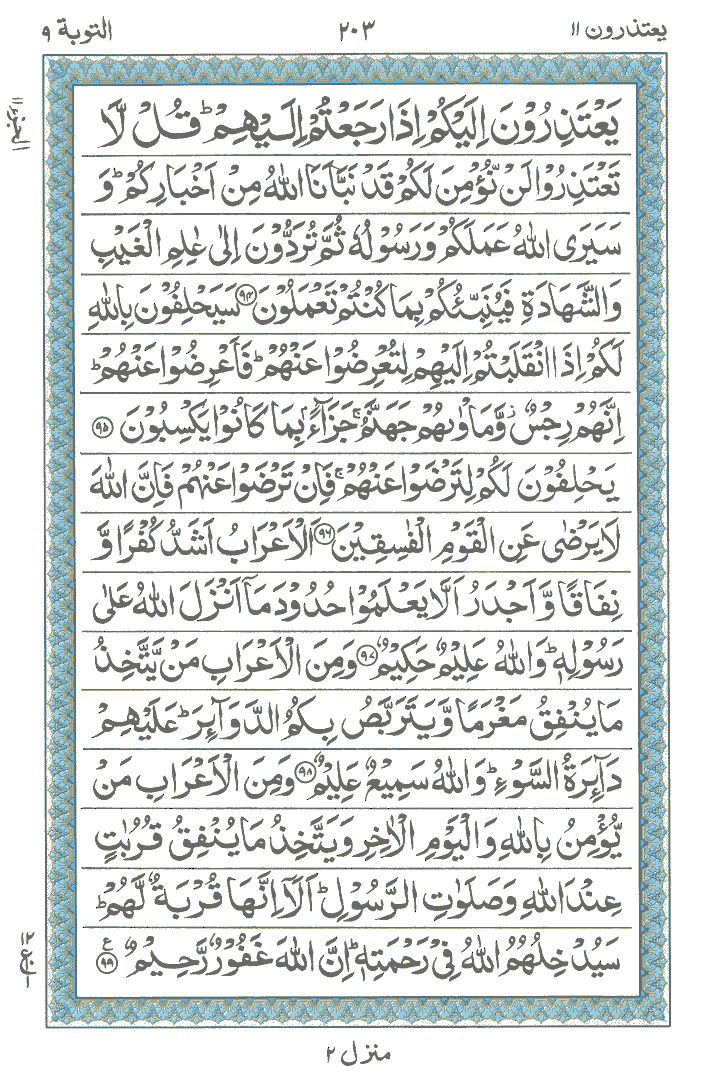 يعتذرون ١١ ٢٠٣ التوبة ٩
الجزء ١١
يَعْتَذِرُوْنَ اِلَيْكُمْ اِذَا رَجَعْتُمْ اِلَيْهِمْ ؕ قُلْ لَّا
تَعْتَذِرُوْا لَنْ نُّؤْمِنَ لَكُمْ قَدْ نَبَّاَنَا اللّٰهُ مِنْ اَخْبَارِكُمْ ؕ وَ
سَيَرَى اللّٰهُ عَمَلَكُمْ وَرَسُوْلُهٗ ثُمَّ تُرَدُّوْنَ اِلٰى عٰلِمِ الْغَيْبِ
وَالشَّهَادَةِ فَيُنَبِّئُكُمْ بِمَا كُنْتُمْ تَعْمَلُوْنَ ﴿۹۴﴾ سَيَحْلِفُوْنَ بِاللّٰهِ
لَكُمْ اِذَا انْقَلَبْتُمْ اِلَيْهِمْ لِتُعْرِضُوْا عَنْهُمْ ؕ فَاَعْرِضُوْا عَنْهُمْ ؕ
اِنَّهُمْ رِجْسٌ ؗ وَّمَاْوٰىهُمْ جَهَنَّمُ ۚ جَزَآءًۢ بِمَا كَانُوْا يَكْسِبُوْنَ ﴿۹۵﴾
يَحْلِفُوْنَ لَكُمْ لِتَرْضَوْا عَنْهُمْ ۚ فَاِنْ تَرْضَوْا عَنْهُمْ فَاِنَّ اللّٰهَ
لَا يَرْضٰى عَنِ الْقَوْمِ الْفٰسِقِيْنَ ﴿۹۶﴾ اَلْاَعْرَابُ اَشَدُّ كُفْرًا وَّ
نِفَاقًا وَّاَجْدَرُ اَلَّا يَعْلَمُوْا حُدُوْدَ مَاۤ اَنْزَلَ اللّٰهُ عَلٰى
رَسُوْلِهٖ ؕ وَاللّٰهُ عَلِيْمٌ حَكِيْمٌ ﴿۹۷﴾ وَمِنَ الْاَعْرَابِ مَنْ يَّتَّخِذُ
مَا يُنْفِقُ مَغْرَمًا وَّيَتَرَبَّصُ بِكُمُ الدَّوَآئِرَ ؕ عَلَيْهِمْ
دَآئِرَةُ السَّوْءِ ؕ وَاللّٰهُ سَمِيْعٌ عَلِيْمٌ ﴿۹۸﴾ وَمِنَ الْاَعْرَابِ مَنْ
يُّؤْمِنُ بِاللّٰهِ وَالْيَوْمِ الْاٰخِرِ وَيَتَّخِذُ مَا يُنْفِقُ قُرُبٰتٍ
عِنْدَ اللّٰهِ وَصَلَوٰتِ الرَّسُوْلِ ؕ اَلَاۤ اِنَّهَا قُرْبَةٌ لَّهُمْ ؕ
سَيُدْخِلُهُمُ اللّٰهُ فِيْ رَحْمَتِهٖ ؕ اِنَّ اللّٰهَ غَفُوْرٌ رَّحِيْمٌ ﴿۹۹﴾ ع
منزل ٢